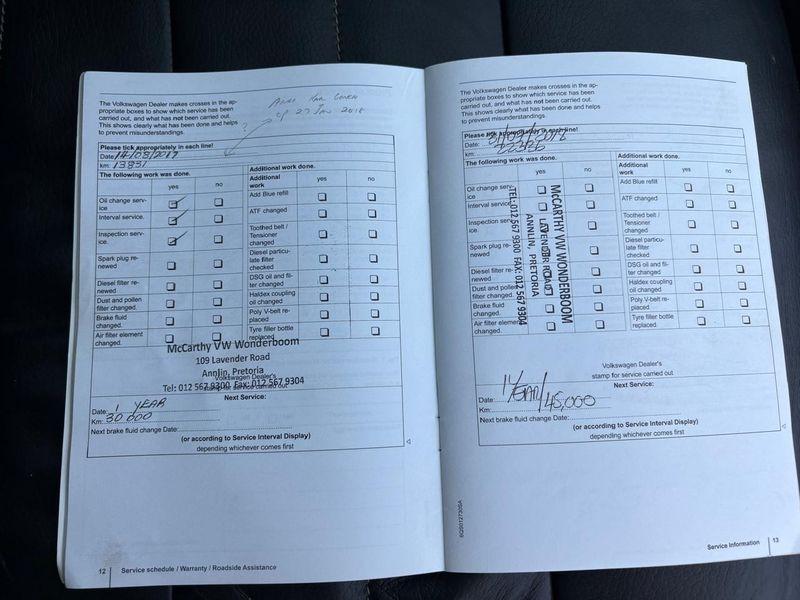 The Volkswagen Dealer makes crosses in the ap-
propriate boxes to show which service has been
carried out, and what has not been carried out.
This shows clearly what has been done and helps
to prevent misunderstandings.
27 Jan 2018
?
Please tick appropriately in each line!
Date: 14/03/2017
km: 13831
The following work was done.
Additional work done.
yes no
Additional work
yes no
Oil change serv-
ice
Add Blue refill
Interval service.
ATF changed
Inspection serv-
ice.
Toothed belt /
Tensioner
changed
Spark plug re-
newed
Diesel particu-
late filter
checked
Diesel filter re-
newed
DSG oil and fil-
ter changed
Dust and pollen
filter changed.
Haldex coupling
oil changed
Brake fluid
changed.
Poly V-belt re-
placed
Air filter element
changed.
Tyre filler bottle
replaced
McCarthy VW Wonderboom
109 Lavender Road
Annlin, Pretoria
Tel: 012 567 9300 Fax: 012 567 9304
Volkswagen Dealer's
stamp for service carried out
Next Service:
Date: 1 YEAR
Km: 30 000
Next brake fluid change Date:
(or according to Service Interval Display)
depending whichever comes first
12 Service schedule / Warranty / Roadside Assistance
The Volkswagen Dealer makes crosses in the ap-
propriate boxes to show which service has been
carried out, and what has not been carried out.
This shows clearly what has been done and helps
to prevent misunderstandings.
Please tick appropriately in each line!
Date:
km:
The following work was done.
Additional work done.
yes no
Additional
work
yes no
Oil change serv-
ice
Add Blue refill
Interval service.
ATF changed
Inspection serv-
ice.
Toothed belt /
Tensioner
changed
Spark plug re-
newed
Diesel particu-
late filter
checked
Diesel filter re-
newed
DSG oil and fil-
ter changed
Dust and pollen
filter changed.
Haldex coupling
oil changed
Brake fluid
changed.
Poly V-belt re-
placed
Air filter element
changed.
Tyre filler bottle
replaced
McCARTHY VW WONDERBOOM
LAVENDER ROAD
ANNLIN, PRETORIA
TEL: 012 567 9300 FAX: 012 567 9304
Volkswagen Dealer's
stamp for service carried out
Next Service:
Date: 1 YEAR/
Km: 45,000
Next brake fluid change Date:
(or according to Service Interval Display)
depending whichever comes first
6Q0012730SA
Service Information 13